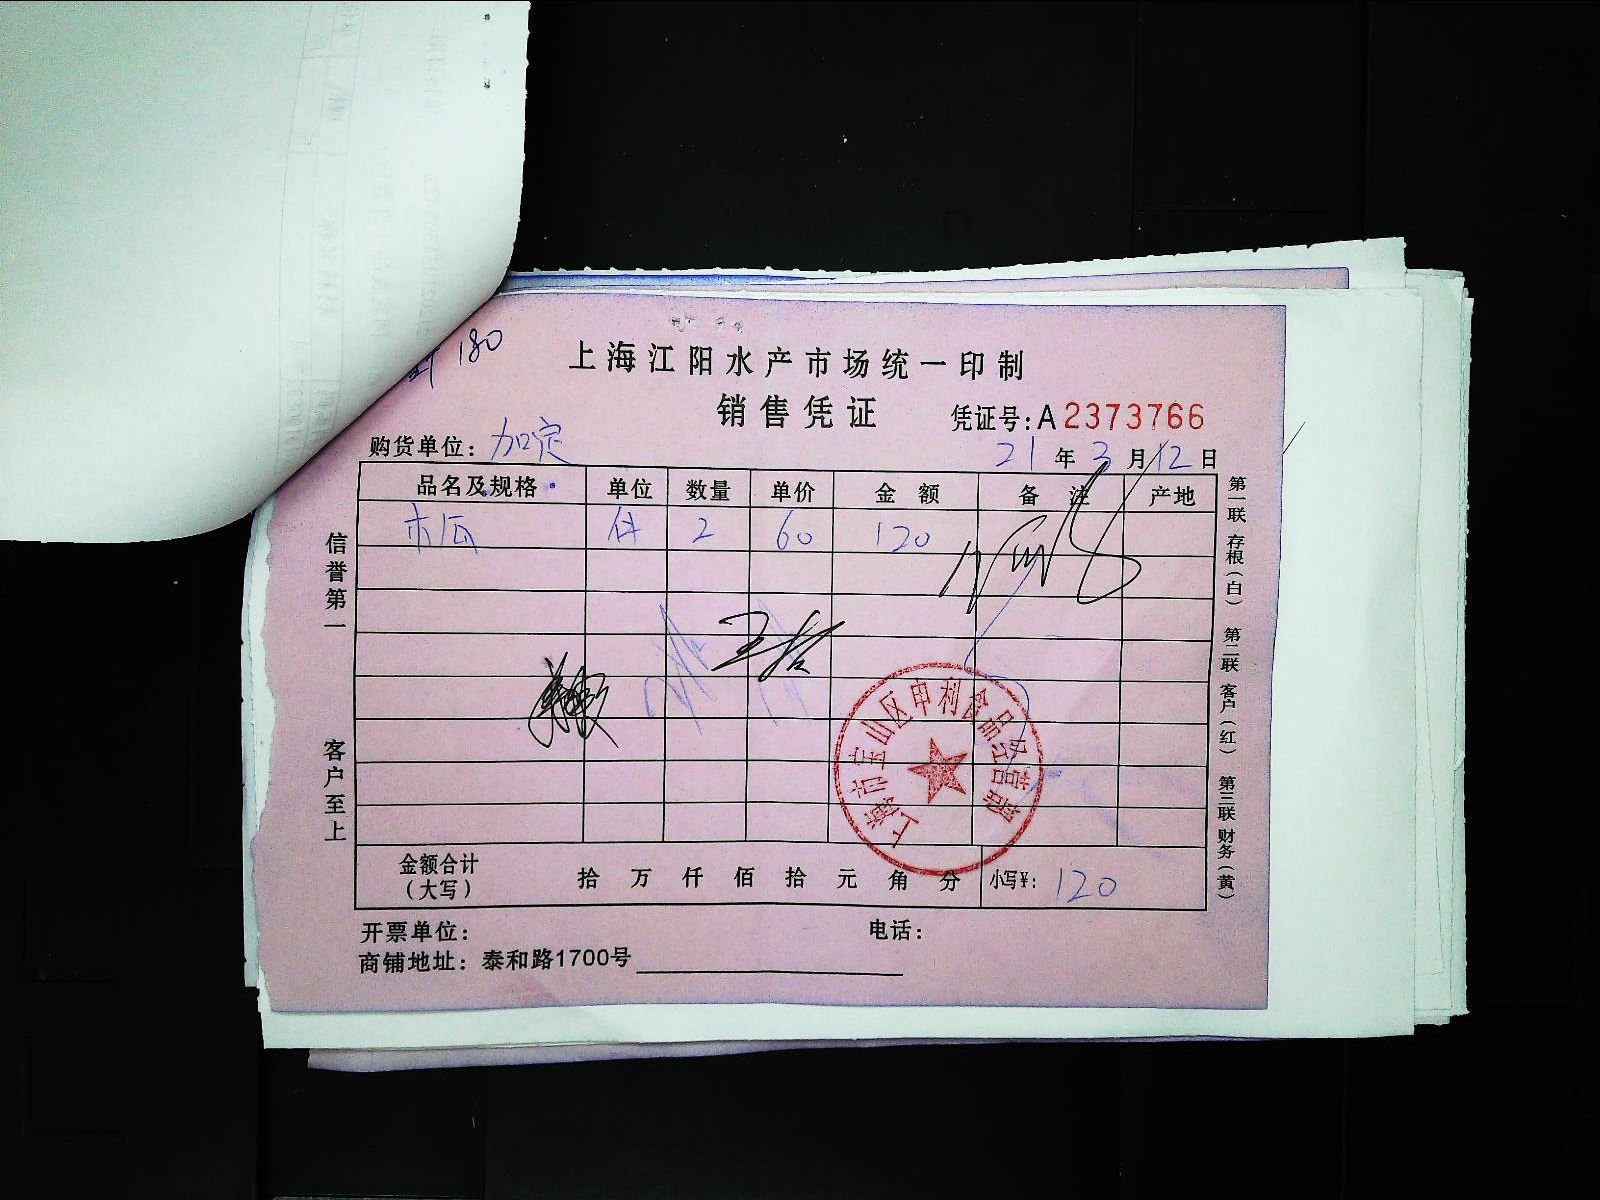 180
上海江阳水产市场统一印制
销售凭证
凭证号:A2373766
购货单位: 加定
21年3月12日
品名及规格 单位 数量 单价 金额 备注 产地
木瓜 件 2 60 120
王
信誉第一
客户至上
第一联 存根(白) 第二联 客户(红) 第三联 财务(黄)
上海市宝山区申利食品经营部
金额合计(大写) 拾 万 仟 佰 拾 元 角 分 小写¥: 120
开票单位: 电话:
商铺地址: 泰和路1700号